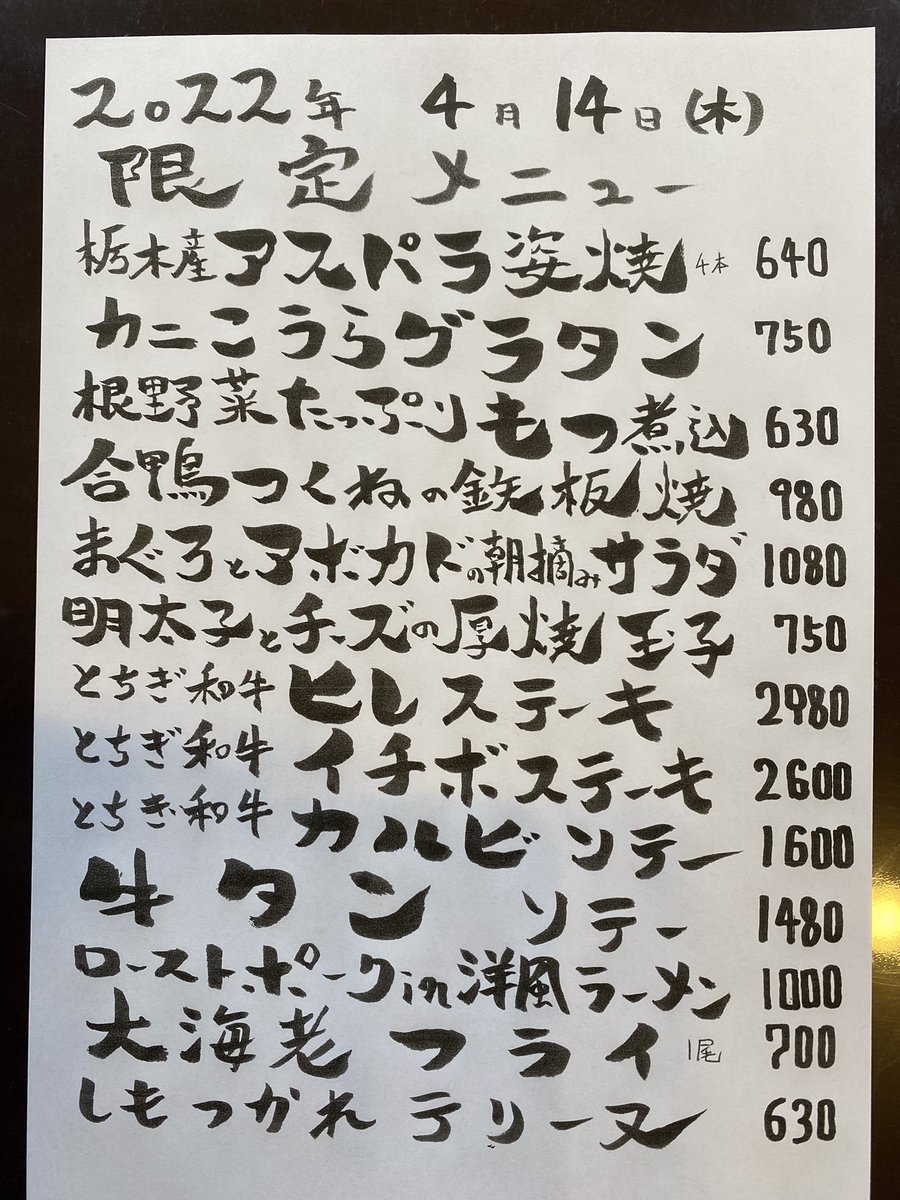 2022年 4月14日(木)
限定メニュー
栃木産アスパラ姿焼 4本 640
カニこうらグラタン 750
根野菜たっぷりもつ煮込 630
合鴨つくねの鉄板焼 980
まぐろとアボカドの朝摘みサラダ 1080
明太子とチーズの厚焼玉子 750
とちぎ和牛 ヒレステーキ 2980
とちぎ和牛 イチボステーキ 2600
とちぎ和牛 カルビソテー 1600
牛タン ソテー 1480
ローストポークin洋風ラーメン 1000
大海老フライ 1尾 700
しもつかれテリーヌ 630